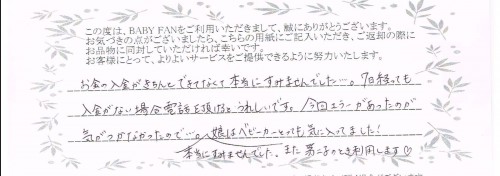 この度は、BABY FANをご利用いただきまして、誠にありがとうございます。
お気づきの点がございましたら、こちらの用紙にご記入いただき、ご返却の際に
お品物に同封していただければ幸いです。
お客様にとって、よりよいサービスをご提供できるように努力いたします。
お金の入金がきちんとできてなくて本当にすみませんでした…。7日経っても
入金がない場合電話を頂けるとうれしいです。今回エラーがあったのが
気がつかなかったので…。娘はベビーカーとっても気に入ってました!
本当にすみませんでした。また第二子のとき利用します♡